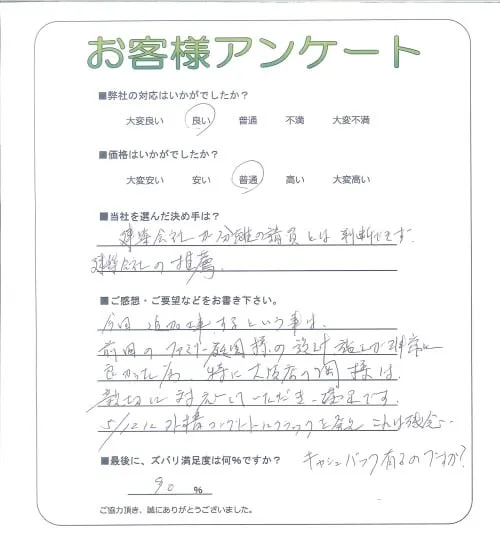 お客様アンケート
■弊社の対応はいかがでしたか？
大変良い 良い 普通 不満 大変不満
■価格はいかがでしたか？
大変安い 安い 普通 高い 大変高い
■当社を選んだ決め手は？
建築会社か分離の請負とは判断できず.
建築会社の推薦.
■ご感想・ご要望などをお書き下さい。
今回追加工事するという事は、
前回のファミリー庭園様の設計施工が非常に
良かった為 特に大阪店の 様は
親切に対応していただき です.
5/12に外構コンクリートにクラックを発見 これは残念…
キャッシュバック有るのですか？
■最後に、ズバリ満足度は何%ですか？
90 %
ご協力頂き、誠にありがとうございました。